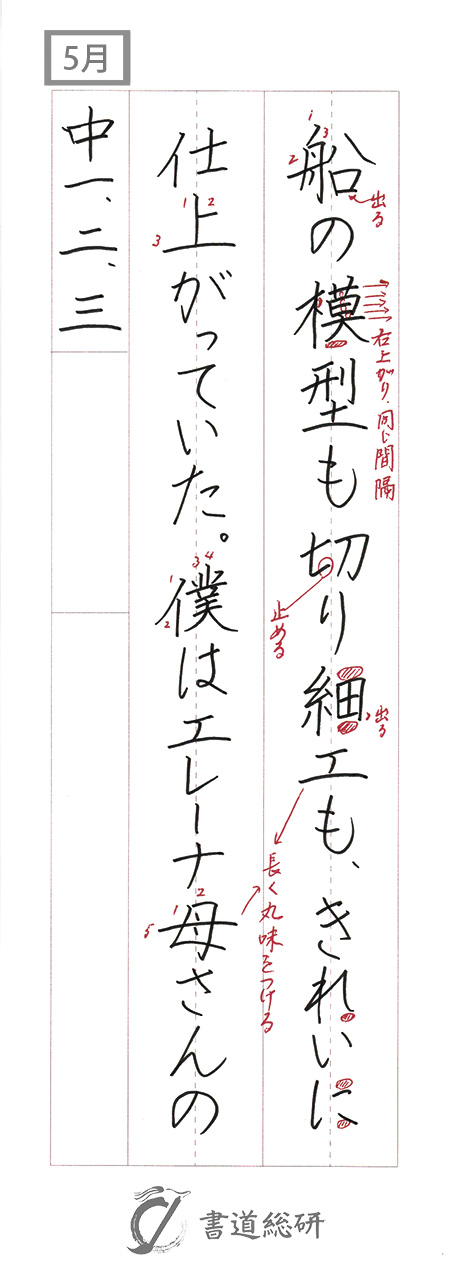 5月
船の模型も切り細工も、きれいに
仕上がっていた。僕はエレーナ母さんの
中一、二、三
1
2
3
出る
右上がり・同じ間隔
止める
出る
長く丸味をつける
1
2
3
1
2
3
4
1
2
5
書道総研